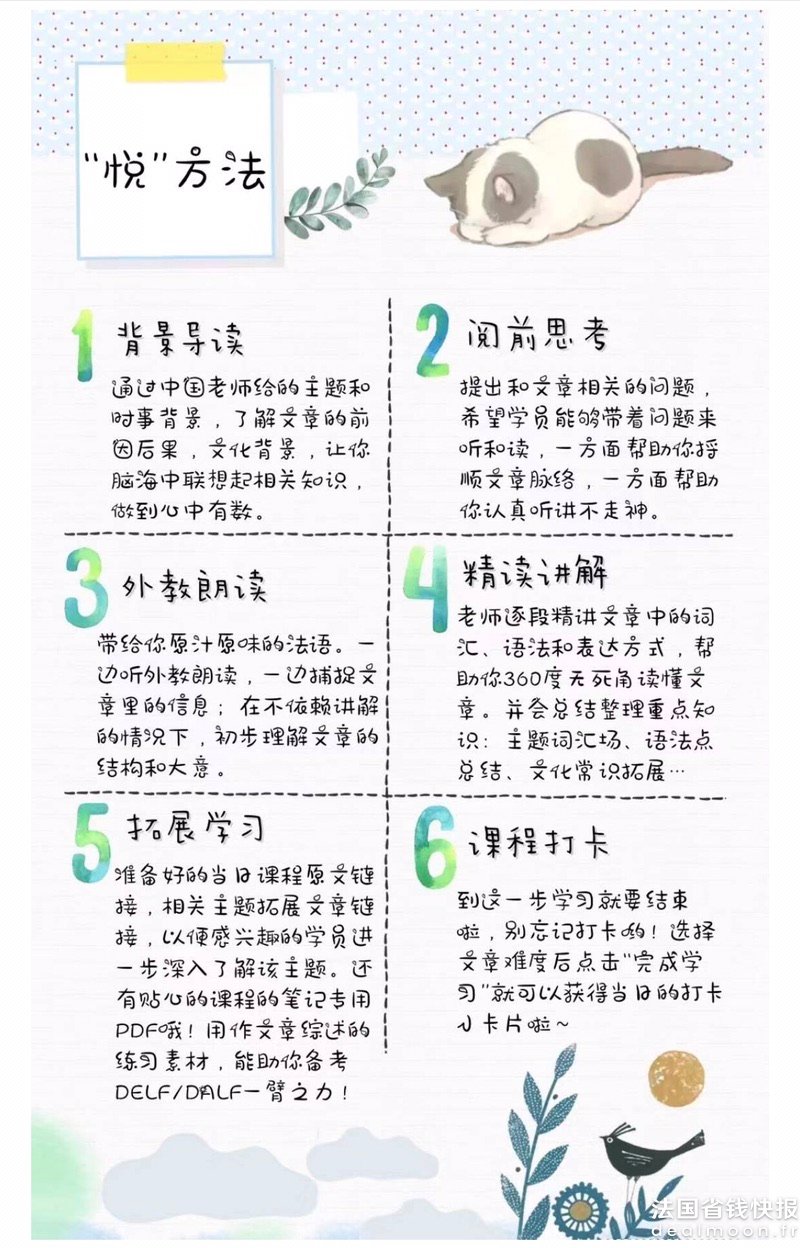 “悦”方法
1 背景导读
通过中国老师给的主题和
时事背景，了解文章的前
因后果，文化背景，让你
脑海中联想起相关知识，
做到心中有数。
2 阅前思考
提出和文章相关的问题，
希望学员能够带着问题来
听和读，一方面帮助你捋
顺文章脉络，一方面帮助
你认真听讲不走神。
3 外教朗读
带给你原汁原味的法语。一
边听外教朗读，一边捕捉文
章里的信息；在不依赖讲解
的情况下，初步理解文章的
结构和大意。
4 精读讲解
老师逐段精讲文章中的词
汇、语法和表达方式，帮
助你360度无死角读懂文
章。并会总结整理重点知
识：主题词汇场、语法点
总结、文化常识拓展…
5 拓展学习
准备好的当日课程原文链
接，相关主题拓展文章链
接，以便感兴趣的学员进
一步深入了解该主题。还
有贴心的课程的笔记专用
PDF哦！用作文章综述的
练习素材，能助你备考
DELF/DALF一臂之力！
6 课程打卡
到这一步学习就要结束
啦，别忘记打卡哟！选择
文章难度后点击“完成学
习”就可以获得当日的打卡
小卡片啦~
法国省钱快报
dealmoon.fr